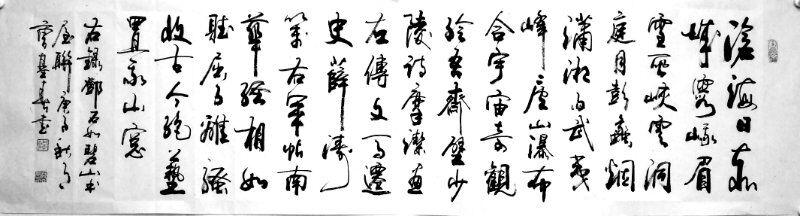 滄海日赤
城霞峨眉
雪巫峽雲洞
庭月彭蠡烟
瀟湘雨武夷
峰庐山瀑布
合宇宙奇觀
繪吾齋壁少
陵詩摩詰画
左傳文马遷
史薛濤
箋右軍帖南
華經相如
賦屈子離騷
收古今絕藝
置我山窗
右錄鄧石如碧山书
屋聯